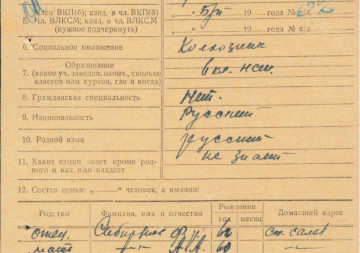 член ВКП(б); канд. в чл. ВКП(б) б/п 19 года №
5. Член ВЛКСМ; канд. в чл. ВЛКСМ 19 года № к/д
(нужное подчеркнуть)
6. Социальное положение Колхозник
7. Образование
(какое уч. заведен. оконч., сколько классов или курсов, где и когда)
8. Гражданская специальность Нет.
9. Национальность Русский
10. Родной язык русский
11. Какие языки знает кроме родного и как ими владеет не знает
12. Состав семьи: „ “ человек, а именно:
Родство Фамилия, имя и отчество Рождение год месяц Домашний адрес
отец Ф. И. 62
мать А. А. 60